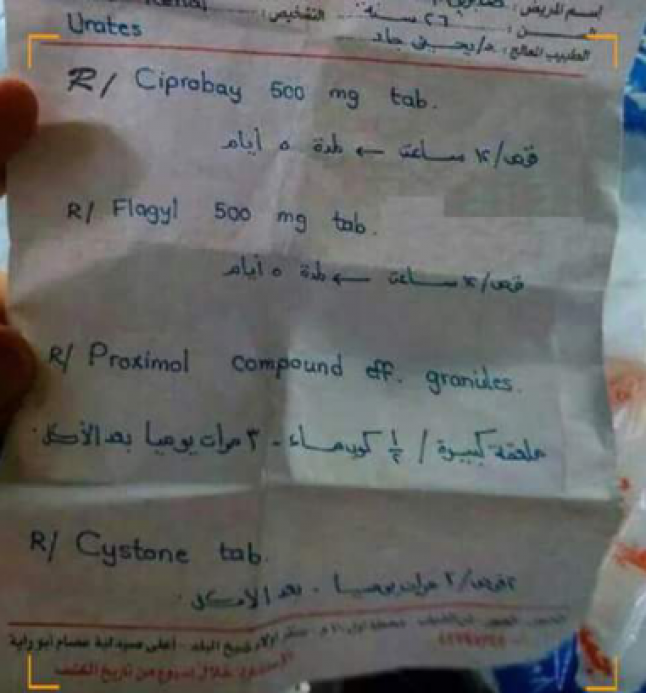 اسم المريض:
٢٦ سنة التشخيص: Renal
الطبيب المعالج: د/يحيى جاد Urates
R/ Ciprobay 500 mg tab.
قرص/١٢ ساعة ← لمدة ٥ أيام
R/ Flagyl 500 mg tab.
قرص/١٢ ساعة ← لمدة ٥ أيام
R/ Proximol compound eff. granules.
ملعقة كبيرة / ½ كوب ماء - ٣ مرات يوميا بعد الأكل.
R/ Cystone tab.
٢قرص/٢ مرات يوميا - بعد الأكل.
شيخ البلد - أعلى صيدلية عصام أبو راية
الإستشارة خلال إسبوع من تاريخ الكشف